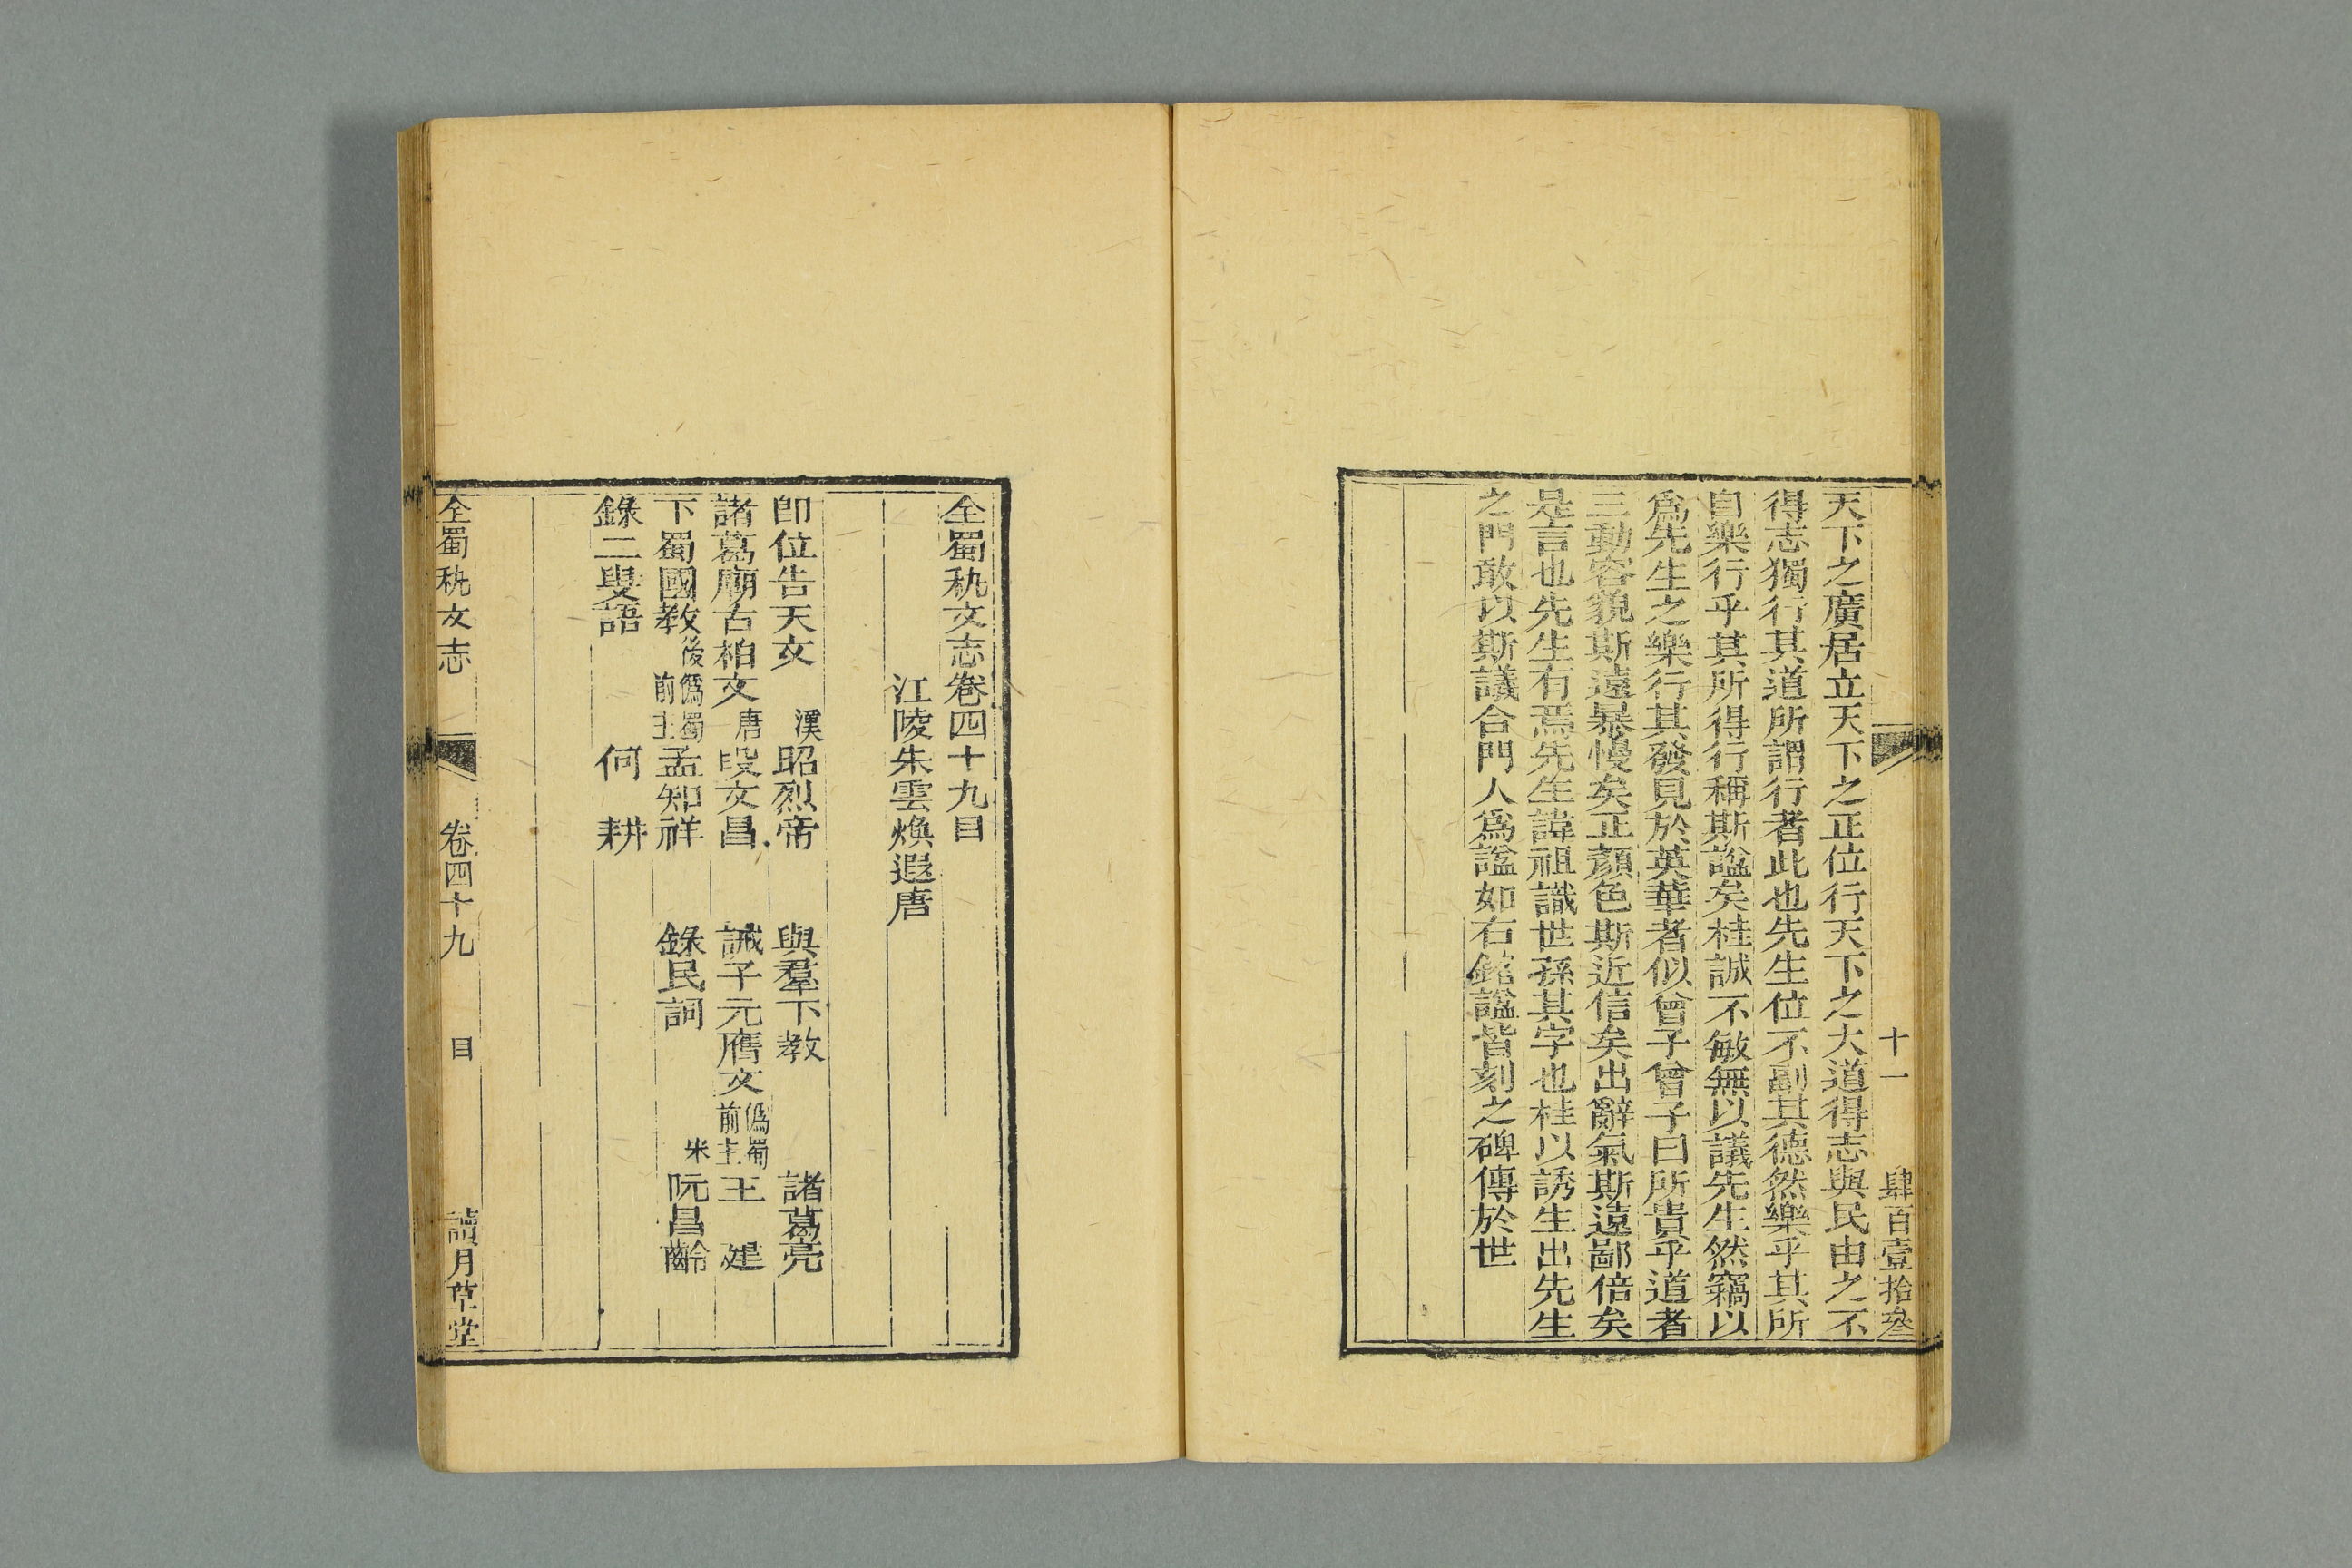 十一　肆百壹拾叄
天下之廣居立天下之正位行天下之大道得志與民由之不
得志獨行其道所謂行者此也先生位不副其德然樂乎其所
自樂行乎其所得行稱斯諡矣桂誠不敏無以議先生然竊以
爲先生之樂行其發見於英華者似曾子曾子曰所貴乎道者
三動容貌斯遠暴慢矣正顏色斯近信矣出辭氣斯遠鄙倍矣
是言也先生有焉先生諱祖識世孫其字也桂以誘生出先生
之門敢以斯議合門人爲諡如右銘諡皆刻之碑傳於世
全蜀秇文志卷四十九目
江陵朱雲煥遐唐
卽位告天文　漢昭烈帝　與羣下教　諸葛亮
諸葛廟古柏文　唐段文昌　誡子元膺文　僞蜀前主王　建
下蜀國教　後僞蜀前主孟知祥　錄民詞　宋阮昌齡
錄二叟語　何　耕
全蜀秇文志　卷四十九　目　讀月草堂